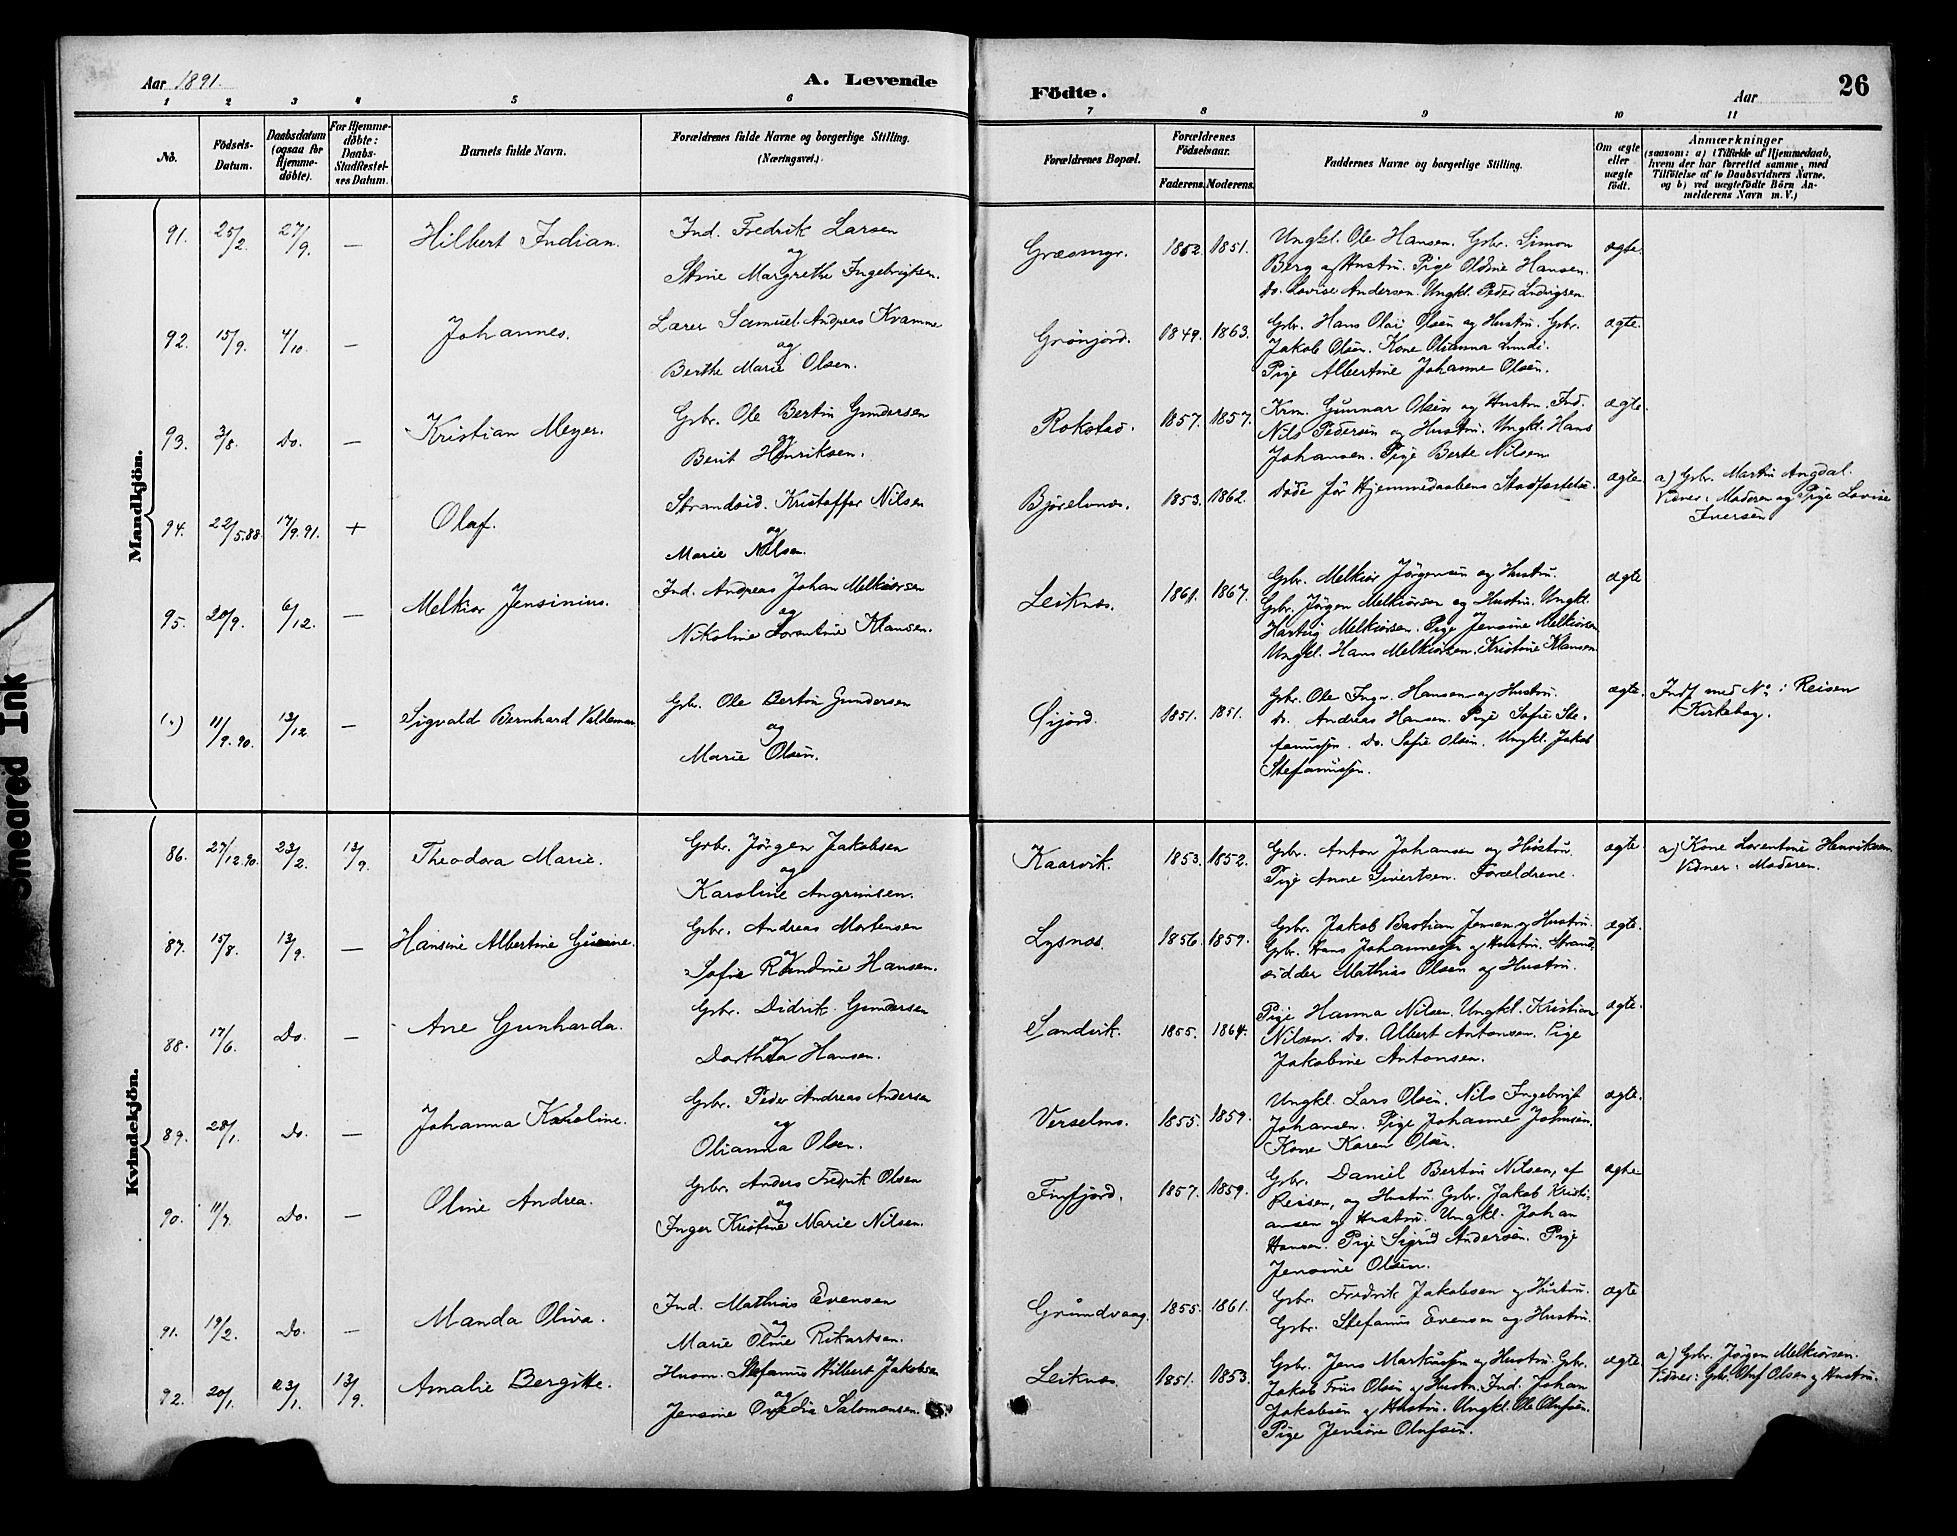 Aar 1891.
A. Levende
Födte.
Aar
26
1 2 3 4 5 6 7 8 9 10 11
No.
Födsels-Datum.
Daabsdatum (ogsaa for Hjemme-döbte).
For Hjemme-döbte: Daabs-Stadfæstel-ses Datum.
Barnets fulde Navn.
Forældrenes fulde Navne og borgerlige Stilling. (Næringsvei.)
Forældrenes Bopæl.
Forældrenes Födselsaar.
Faderens. Moderens.
Faddernes Navne og borgerlige Stilling.
Om ægte eller uægte födt.
Anmærkninger
(saasom: a) i Tilfælde af Hjemmedaab, hvem der har forrettet samme, med Tilföielse af to Daabsvidners Navne, og b) ved uægtefödte Börn An-melderens Navn m. V.)
Mandkjön.
91. 25/2. 27/9. — Hilbert Indian. Ind. Fredrik Larsen
og
Stine Margrethe Ingebrigtsen.
Græsmyr. 1852. 1851. Ungkl. Ole Hansen. Gbr. Simon
Berg og Hustru. Pige Oldine Hansen.
Do. Lovise Andersen. Ungkl. Peder Ludvigsen
ægte.
92. 15/9. 4/10. — Johannes. Lærer Samuel Andreas Kvamme
og
Berthe Marie Olsen.
Grönjord. 1849. 1863. Gbr. Hans Olai Olsen og Hustru. Gbr.
Jakob Olsen. Kone Olianna Lunde.
Pige Albertine Johanne Olsen.
ægte.
93. 3/8. Do. — Kristian Meyer. Gbr. Ole Bertin Gundersen
og
Berit Henriksen.
Rokstad. 1857. 1857. Krm. Gunnar Olsen og Hustru. Ind.
Nils Pedersen og Hustru. Ungkl. Hans
Johansen. Pige Berte Nilsen
ægte.
94. 22/5.88. 17/9.91. + Olaf. Strandsid. Kristoffer Nilsen
og
Marie Nilsen.
Bjørelvnes. 1853. 1862. Døde før Hjemmedaabens Stadfæstelse. ægte
a) Gbr. Martin Angdal.
Vidner: Moderen og Pige Lovise
Iversen
95. 20/9. 6/12. — Melkior Jensinius. Ind. Andreas Johan Melkiorsen
og
Nikoline Lorentine Klausen.
Leiknes. 1861. 1867. Gbr. Melkior Jørgensen og Hustru.
Gbr. Jørgen Melkiorsen og Hustru. Ungkl.
Hartvig Melkiorsen. Pige Jensine Melkiorsen
Ungkl. Hans Melkiorsen. Kristine Klausen
ægte
(") 11/9.90. 13/12. — Sigvald Bernhard Valdemar Gbr. Ole Bertin Gundersen
og
Marie Olsen.
Øijord. 1851. 1851. Gbr. Ole Ingv. Hansen og Hustru.
do. Andreas Hansen. Pige Sofie Ste-
fanussen. Do. Sofie Olsen. Ungkl. Jakob
Stefanussen.
ægte. Indf. med No i Reisen
Kirkebog.
Kvindekjön.
86. 27/12.90. 23/2. 13/9. Theodora Marie. Gbr. Jørgen Jakobsen
og
Karoline Angrimsen.
Kaarvik. 1853. 1852. Gbr. Anton Johansen og Hustru.
Pige Anne Sivertsen. Forældrene.
ægte a) Kone Lorentine Henriksen
Vidner: Moderen.
87. 15/8. 13/9. — Hansine Albertine Gurine. Gbr. Andreas Mortensen
og
Sofie Randine Hansen.
Lysnes. 1856. 1859. Gbr. Jakob Bastian Jensen og Hustru.
Gbr. Hans Johannessen og Hustru. Strand-
sidder Mathias Olsen og Hustru.
ægte.
88. 17/6. Do. — Ane Gunharda. Gbr. Didrik Gundersen
og
Dorthea Hansen.
Sandvik. 1855. 1864. Pige Hanna Nilsen. Ungkl. Kristian
Nilsen. Do. Albert Antonsen. Pige
Jakobine Antonsen.
ægte.
89. 28/1. Do. — Johanna Karoline. Gbr. Peder Andreas Andersen
og
Olianna Olsen.
Verselnes. 1855. 1859. Ungkl. Lars Olsen. Nils Ingebrigt
Johansen. Pige Johanne Johnsen.
Kone Karen Olsen.
ægte.
90. 11/7. Do. — Oline Andrea. Gbr. Anders Fredrik Olsen
og
Inger Kristine Marie Nilsen.
Finfjord. 1857. 1859. Gbr. Daniel Bertin Nilsen, af
Reisen, og Hustru. Gbr. Jakob Kristi-
ansen og Hustru. Ungkl. Johan
Hansen. Pige Sigrid Andersen. Pige
Jensine Olsen.
ægte
91. 19/2. Do. — Manda Oliva. Ind. Mathias Evensen
og
Marie Oline Rikartsen.
Grundvaag. 1855. 1861. Gbr. Fredrik Jakobsen og Hustru.
Gbr. Stefanus Evensen og Hustru.
ægte
92. 20/1. 23/1. 13/9. Amalie Bergitte. Husm. Stefanus Hilbert Jakobsen
og
Jensine Ovedia Salomonsen.
Leiknes. 1851. 1853. Gbr. Jens Markussen og Hustru. Gbr.
Jakob Friis Olsen og Hustru. Ind. Johan
Jakobsen og Hustru. Ungkl. Ole Olufsen.
Pige Jensine Olufsen.
ægte. a) Gbr. Jørgen Melkiorsen.
Vidner: Gbr. Oluf Olsen og Hustru.
Smeared Ink